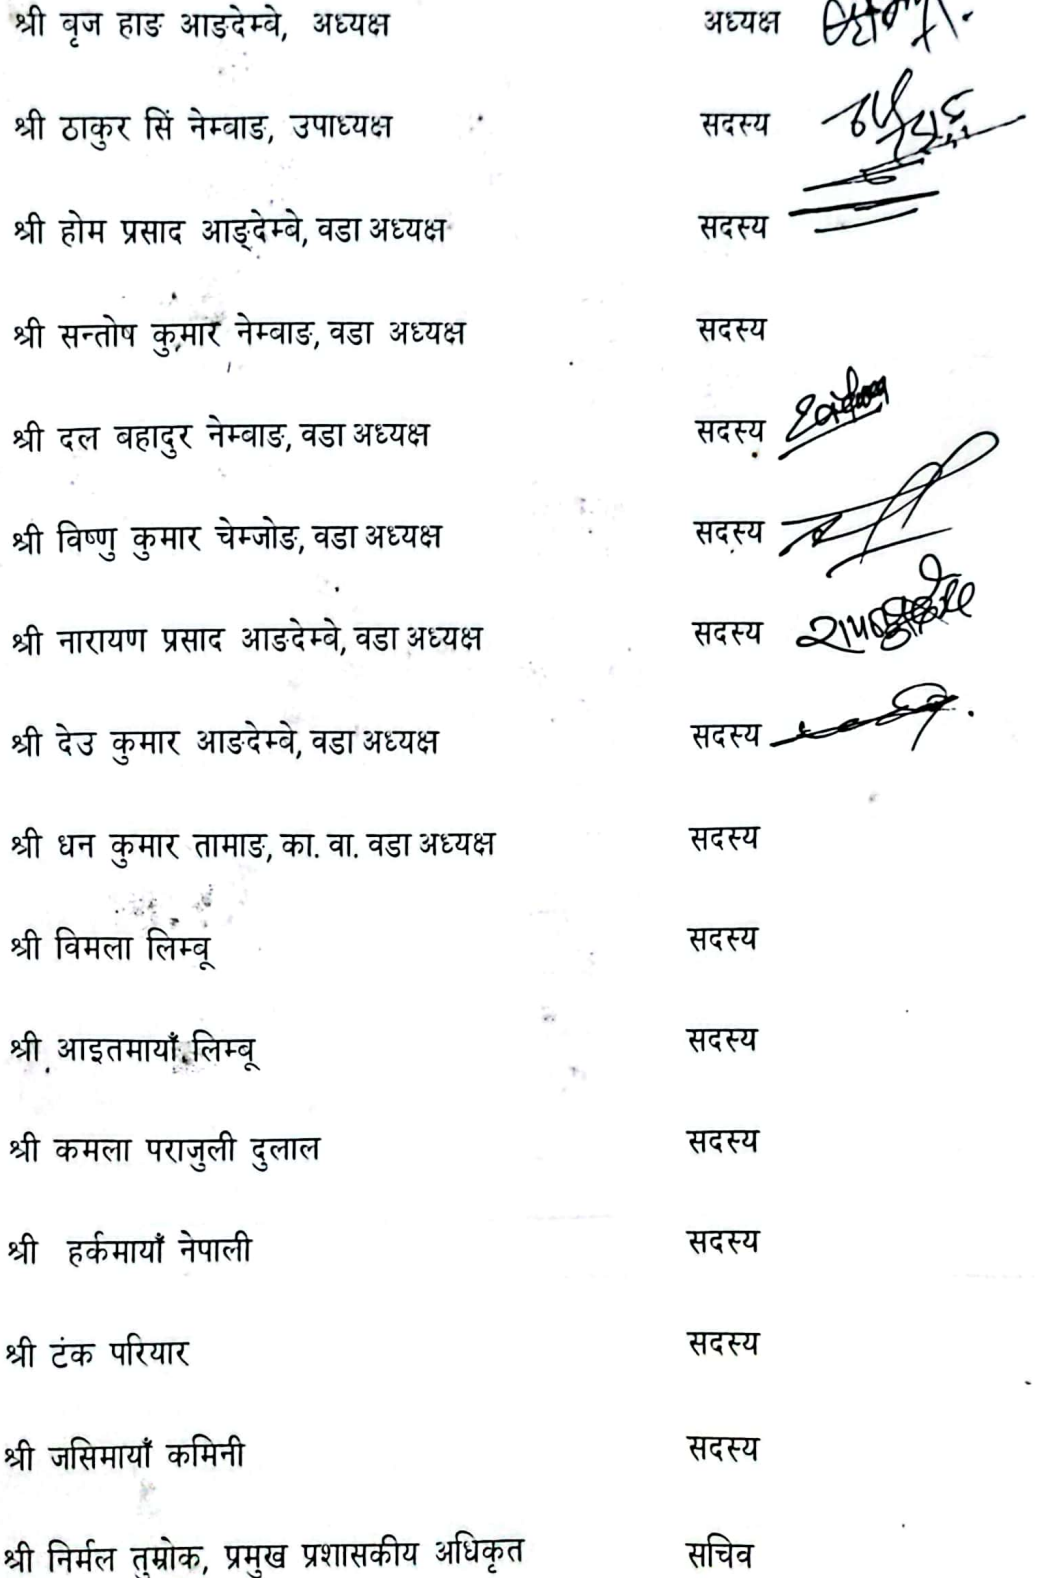 श्री बृज हाङ आङदेम्बे, अध्यक्ष अध्यक्ष
श्री ठाकुर सिं नेम्वाङ, उपाध्यक्ष सदस्य
श्री होम प्रसाद आङ्देम्बे, वडा अध्यक्ष सदस्य
श्री सन्तोष कुमार नेम्वाङ, वडा अध्यक्ष सदस्य
श्री दल बहादुर नेम्वाङ, वडा अध्यक्ष सदस्य
श्री विष्णु कुमार चेम्जोङ, वडा अध्यक्ष सदस्य
श्री नारायण प्रसाद आङदेम्बे, वडा अध्यक्ष सदस्य
श्री देउ कुमार आङदेम्बे, वडा अध्यक्ष सदस्य
श्री धन कुमार तामाङ, का. वा. वडा अध्यक्ष सदस्य
श्री विमला लिम्वू सदस्य
श्री आइतमायाँ लिम्बू सदस्य
श्री कमला पराजुली दुलाल सदस्य
श्री हर्कमायाँ नेपाली सदस्य
श्री टंक परियार सदस्य
श्री जसिमायाँ कमिनी सदस्य
श्री निर्मल तुम्रोक, प्रमुख प्रशासकीय अधिकृत सचिव